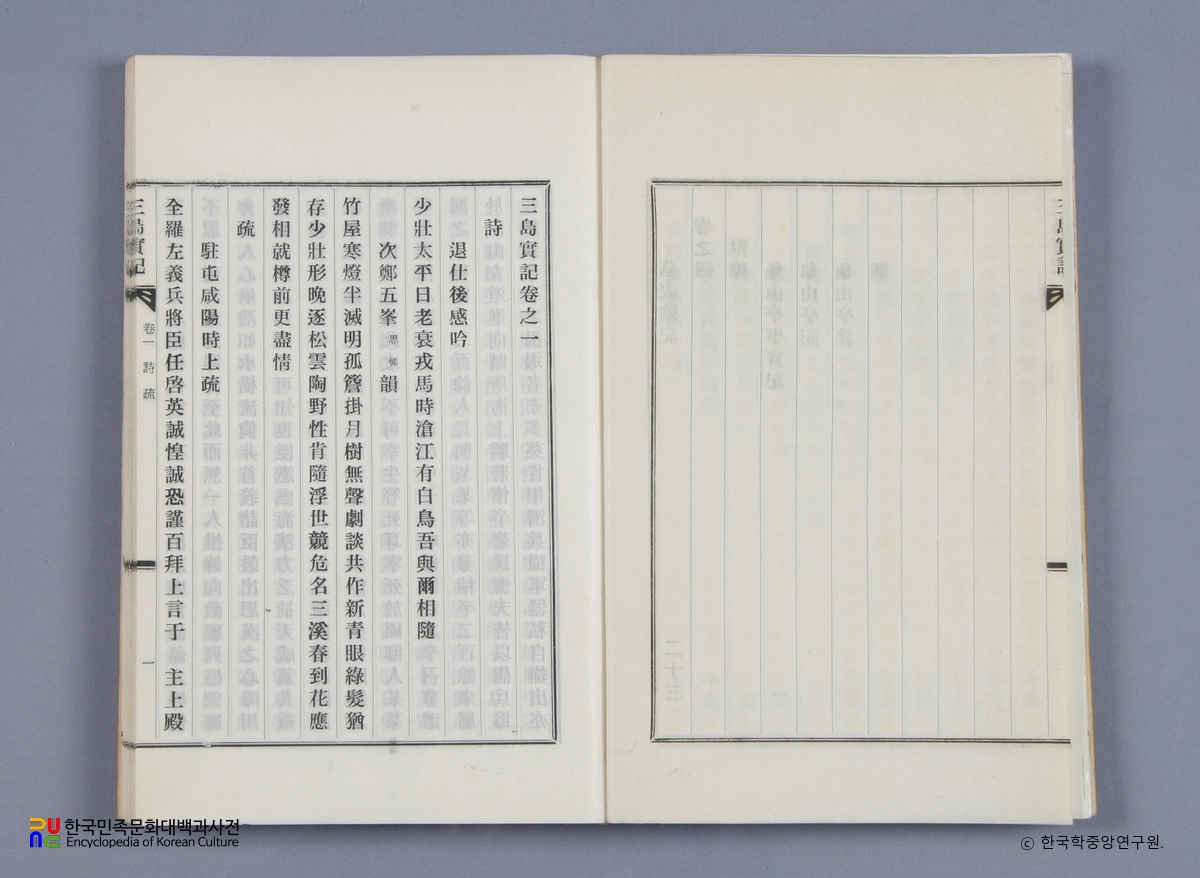 三島實記卷之一
詩
退仕後感吟
少壯太平日老衰戎馬時滄江有白鳥吾與爾相隨
次鄭五峯韻
竹屋寒燈半滅明孤簷掛月樹無聲劇談共作新青眼綠髮猶
存少壯形晚逐松雲陶野性肯隨浮世競危名三溪春到花應
發相就樽前更盡情
疏
駐屯咸陽時上疏
全羅左義兵將臣任啓英誠惶誠恐謹百拜上言于 主上殿
三島實記
卷一 詩 疏
一
한국민족문화대백과사전
Encyclopedia of Korean Culture
ⓒ 한국학중앙연구원.